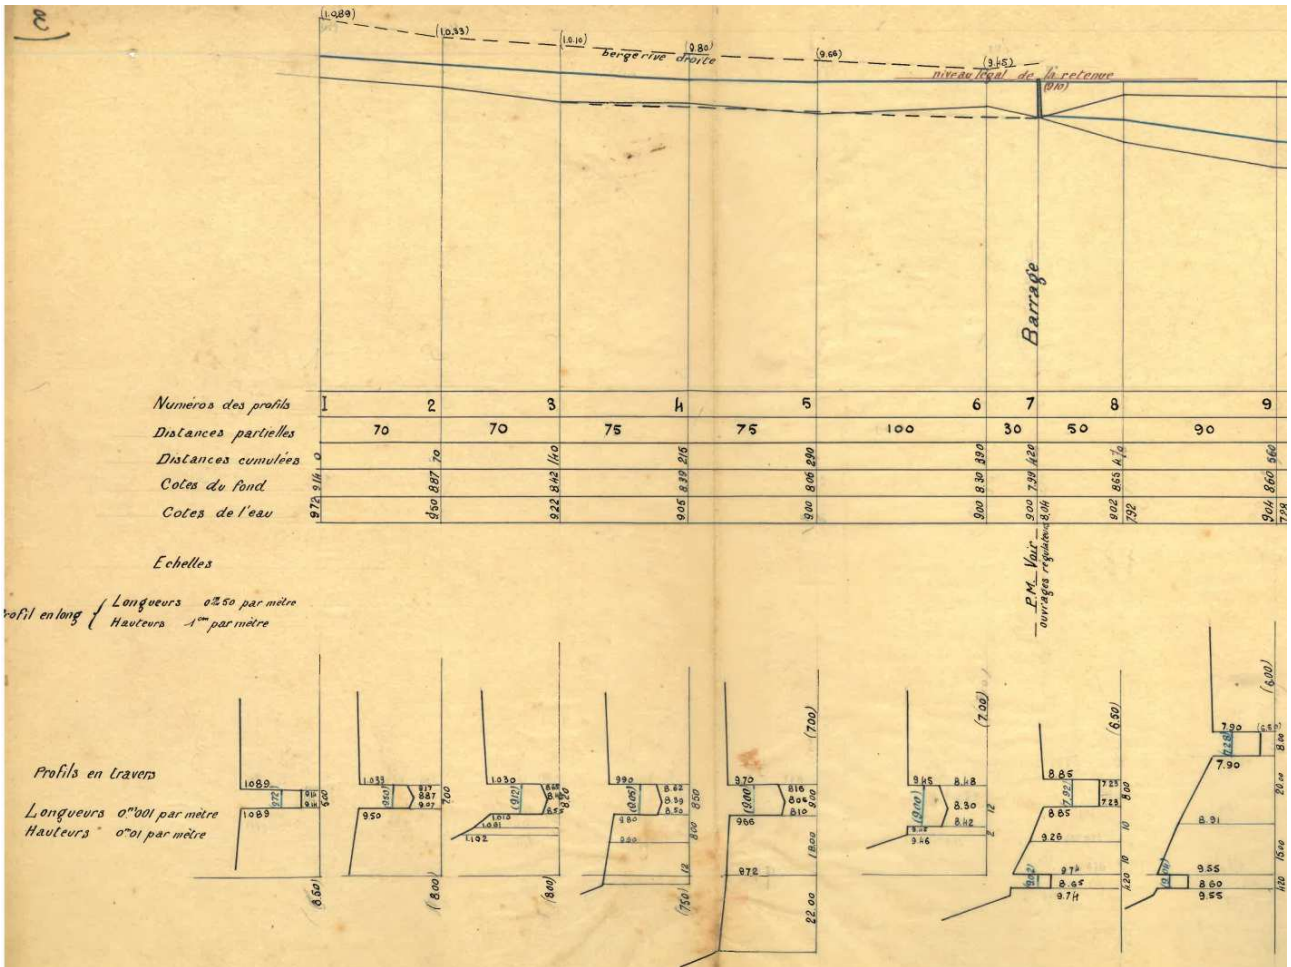 a)
(10.89) (10.33) (10.10) (9.80) (9.66) (9.45)
berge rive droite
niveau légal de la retenue
(9.10)
Barrage
Numéros des profils I 2 3 4 5 6 7 8 9
Distances partielles 70 70 75 75 100 30 50 90
Distances cumulées 0 70 140 215 290 390 420 470 560
Cotes du fond 9.14 8.87 8.42 8.39 8.06 8.30 7.99 8.65 8.60
Cotes de l'eau 9.72 9.50 9.22 9.05 9.00 9.00 9.00 8.04 9.02 7.92 9.04 7.28
P.M. Voir
ouvrages régulateurs
Echelles
Profil en long { Longueurs 0m/m50 par mètre
Hauteurs 1cm par mètre
Profils en travers
Longueurs 0m001 par mètre
Hauteurs 0m01 par mètre
1089 (9.72) 9.14 9.14 6.00 1089 (8.50)
1.033 (9.50) 9.17 8.87 9.07 7.00 9.50 (8.00)
1.030 (9.12) 8.55 8.20 1.010 1.031 1.102 (8.00)
990 (9.05) 8.62 8.39 8.50 8.50 9.80 9.90 8.00 12 (7.50)
(7.00) 9.70 (9.00) 8.18 8.06 8.10 9.00 966 18.00 972 22.00
(7.00) 9.45 8.48 (9.00) 8.30 12 8.42 2 9.46
(6.50) 8.85 7.23 (7.92) 7.23 8.00 8.85 10 9.26 10 9.74 (9.02) 8.65 4.20 9.74
(6.00) 7.90 (7.28) 8.00 7.90 20.00 8.91 15.00 9.55 8.60 4.20 9.55